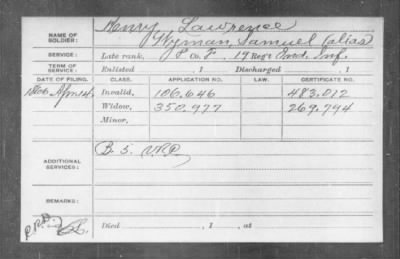 NAME OF SOLDIER: Henry Lawrence
Wyman, Samuel (alias)
SERVICE: Late rank, P Co. F. 19 Reg't Inf.
TERM OF SERVICE: Enlisted , 1 Discharged , 1
DATE OF FILING. CLASS. APPLICATION NO. LAW. CERTIFICATE NO.
Invalid, 106.646 483.012
Widow, 350.977 269.794
Minor,
ADDITIONAL SERVICES: B. 5. V.R.C.
REMARKS:
Died , 1 , at